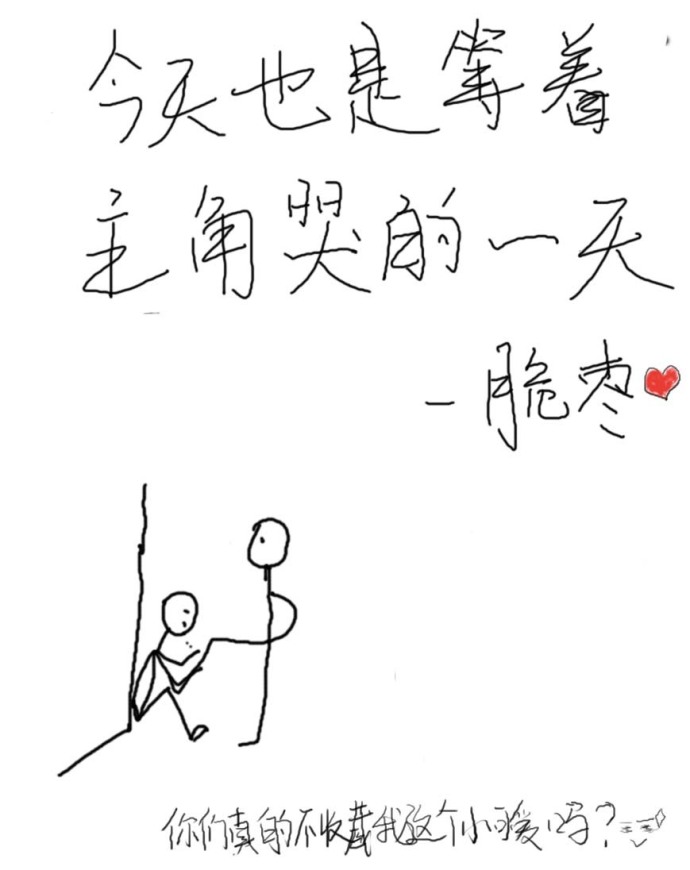 今天也是等着
主角哭的一天
-脆枣
你们真的不收藏我这个小可爱吗?